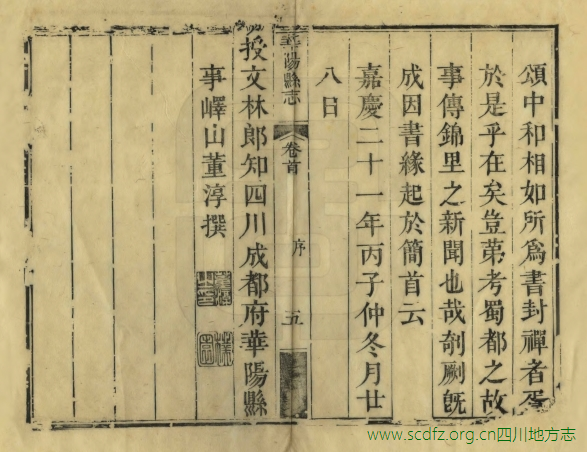 頌中和相如所爲書封禪者胥
於是乎在矣豈第考蜀都之故
事傳錦里之新聞也哉剞劂旣
成因書緣起於簡首云
嘉慶二十一年丙子仲冬月廿
八日
華陽縣志
卷首
序
五
授文林郎知四川成都府華陽縣
事嶧山董淳撰
www.scdfz.org.cn四川地方志